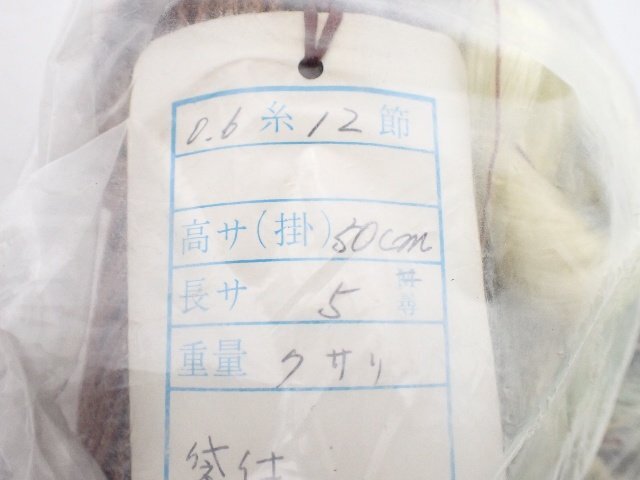 0.6 糸 12 節
高サ(掛) 50cm
長サ 5
重量 クサリ
袋仕